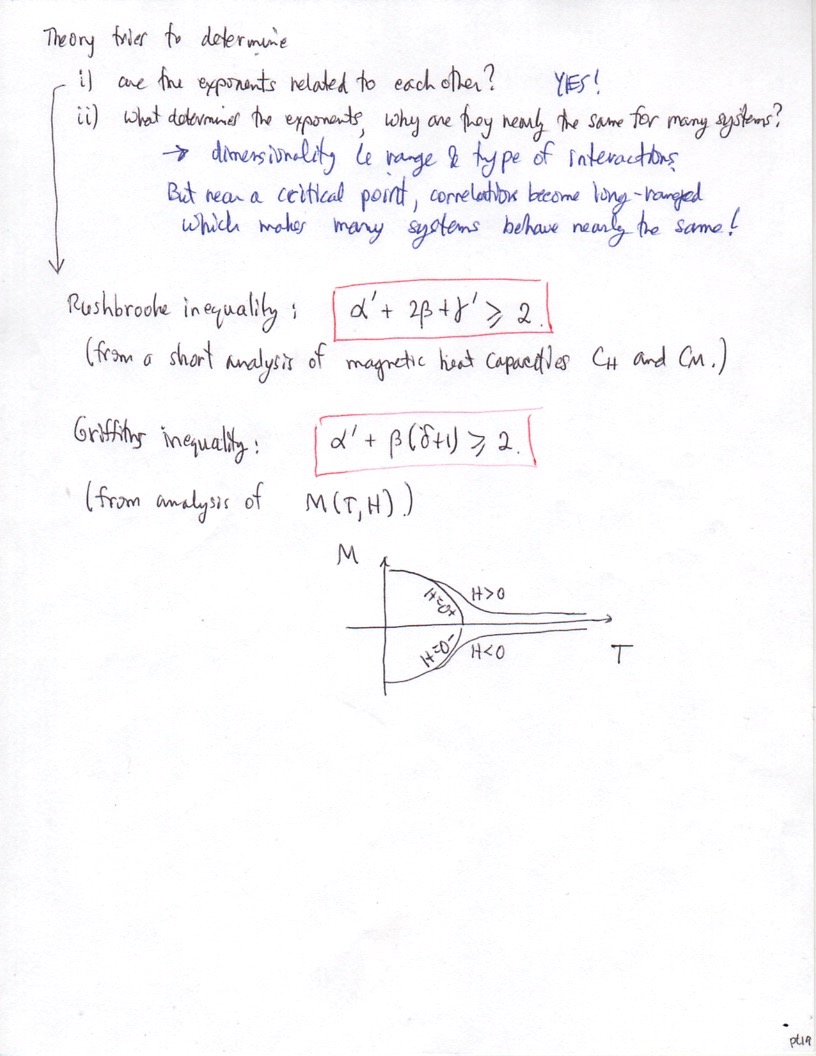 Theory tries to determine
i) are the exponents related to each other? YES!
ii) What determines the exponents, why are they nearly the same for many systems?
→ dimensionality & range & type of interactions
But near a critical point, correlations become long-ranged
which makes many systems behave nearly the same!
Rushbrooke inequality: α' + 2β + γ' ⩾ 2.
(from a short analysis of magnetic heat capacities CH and CM.)
Griffiths inequality: α' + β(δ+1) ⩾ 2.
(from analysis of M(T,H).)
M
H>0
H=0+
H=0-
H<0
T